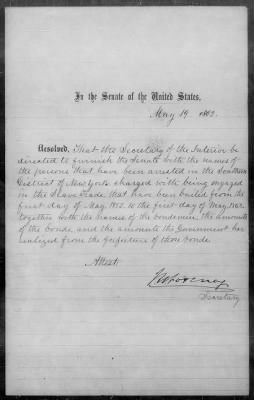 In the Senate of the United States.
May 19 1862.
Resolved, That the Secretary of the Interior be
directed to furnish the Senate with the names of
the persons that have been arrested in the Southern
District of New York charged with being engaged
in the Slave Trade that have been bailed from the
first day of May 1852 to the first day of May 1862
together with the names of the bondsmen, the amounts
of the bonds, and the amounts the Government has
realized from the forfeiture of those bonds.
Attest.
Secretary